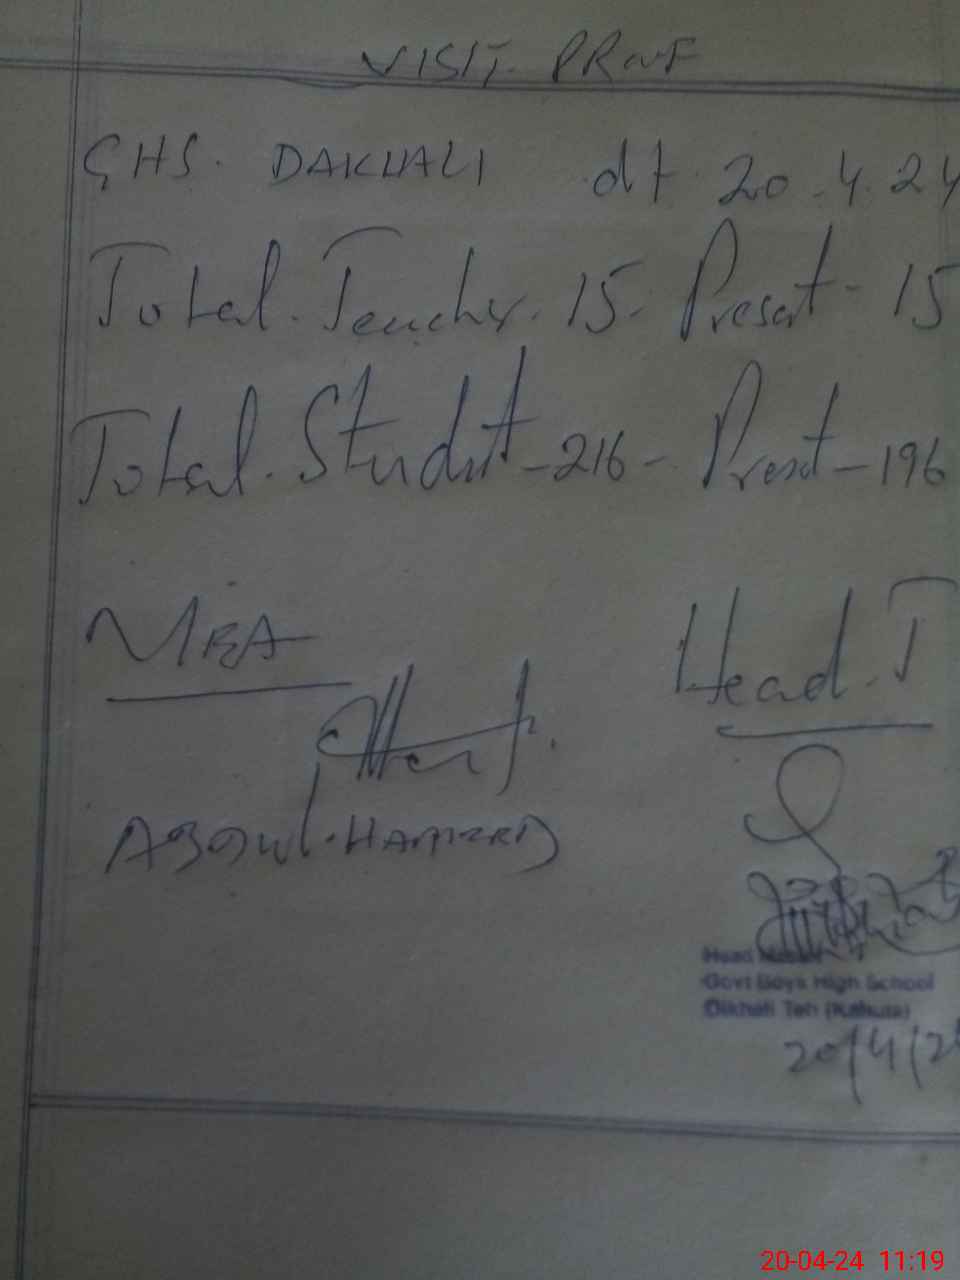 VISIT PROUF
GHS. DAKHALI dt. 20.4.24
Total. Teacher. 15. Present - 15
Total. Student - 216 - Present - 196
MEA
Head. T
ABDUL. HAMEED
Head Master
Govt Boys High School
Dikhali Teh (Kahuta)
20/4/24
20-04-24 11:19